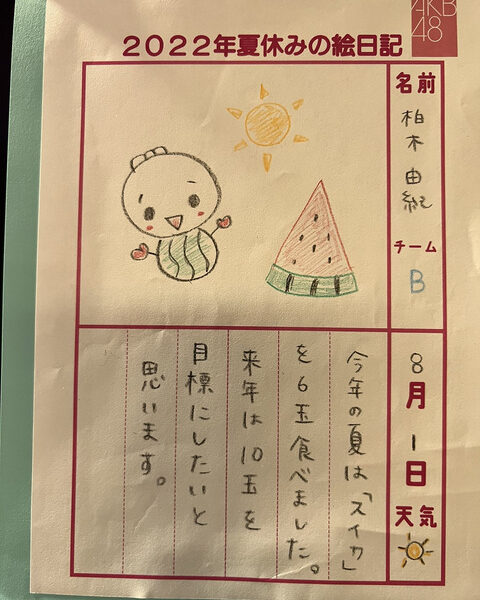 AKB
48
2022年夏休みの絵日記
名前
柏木 由紀
チーム
B
8月1日
天気
今年の夏は「スイカ」
を6玉食べました。
来年は10玉を
目標にしたいと
思います。